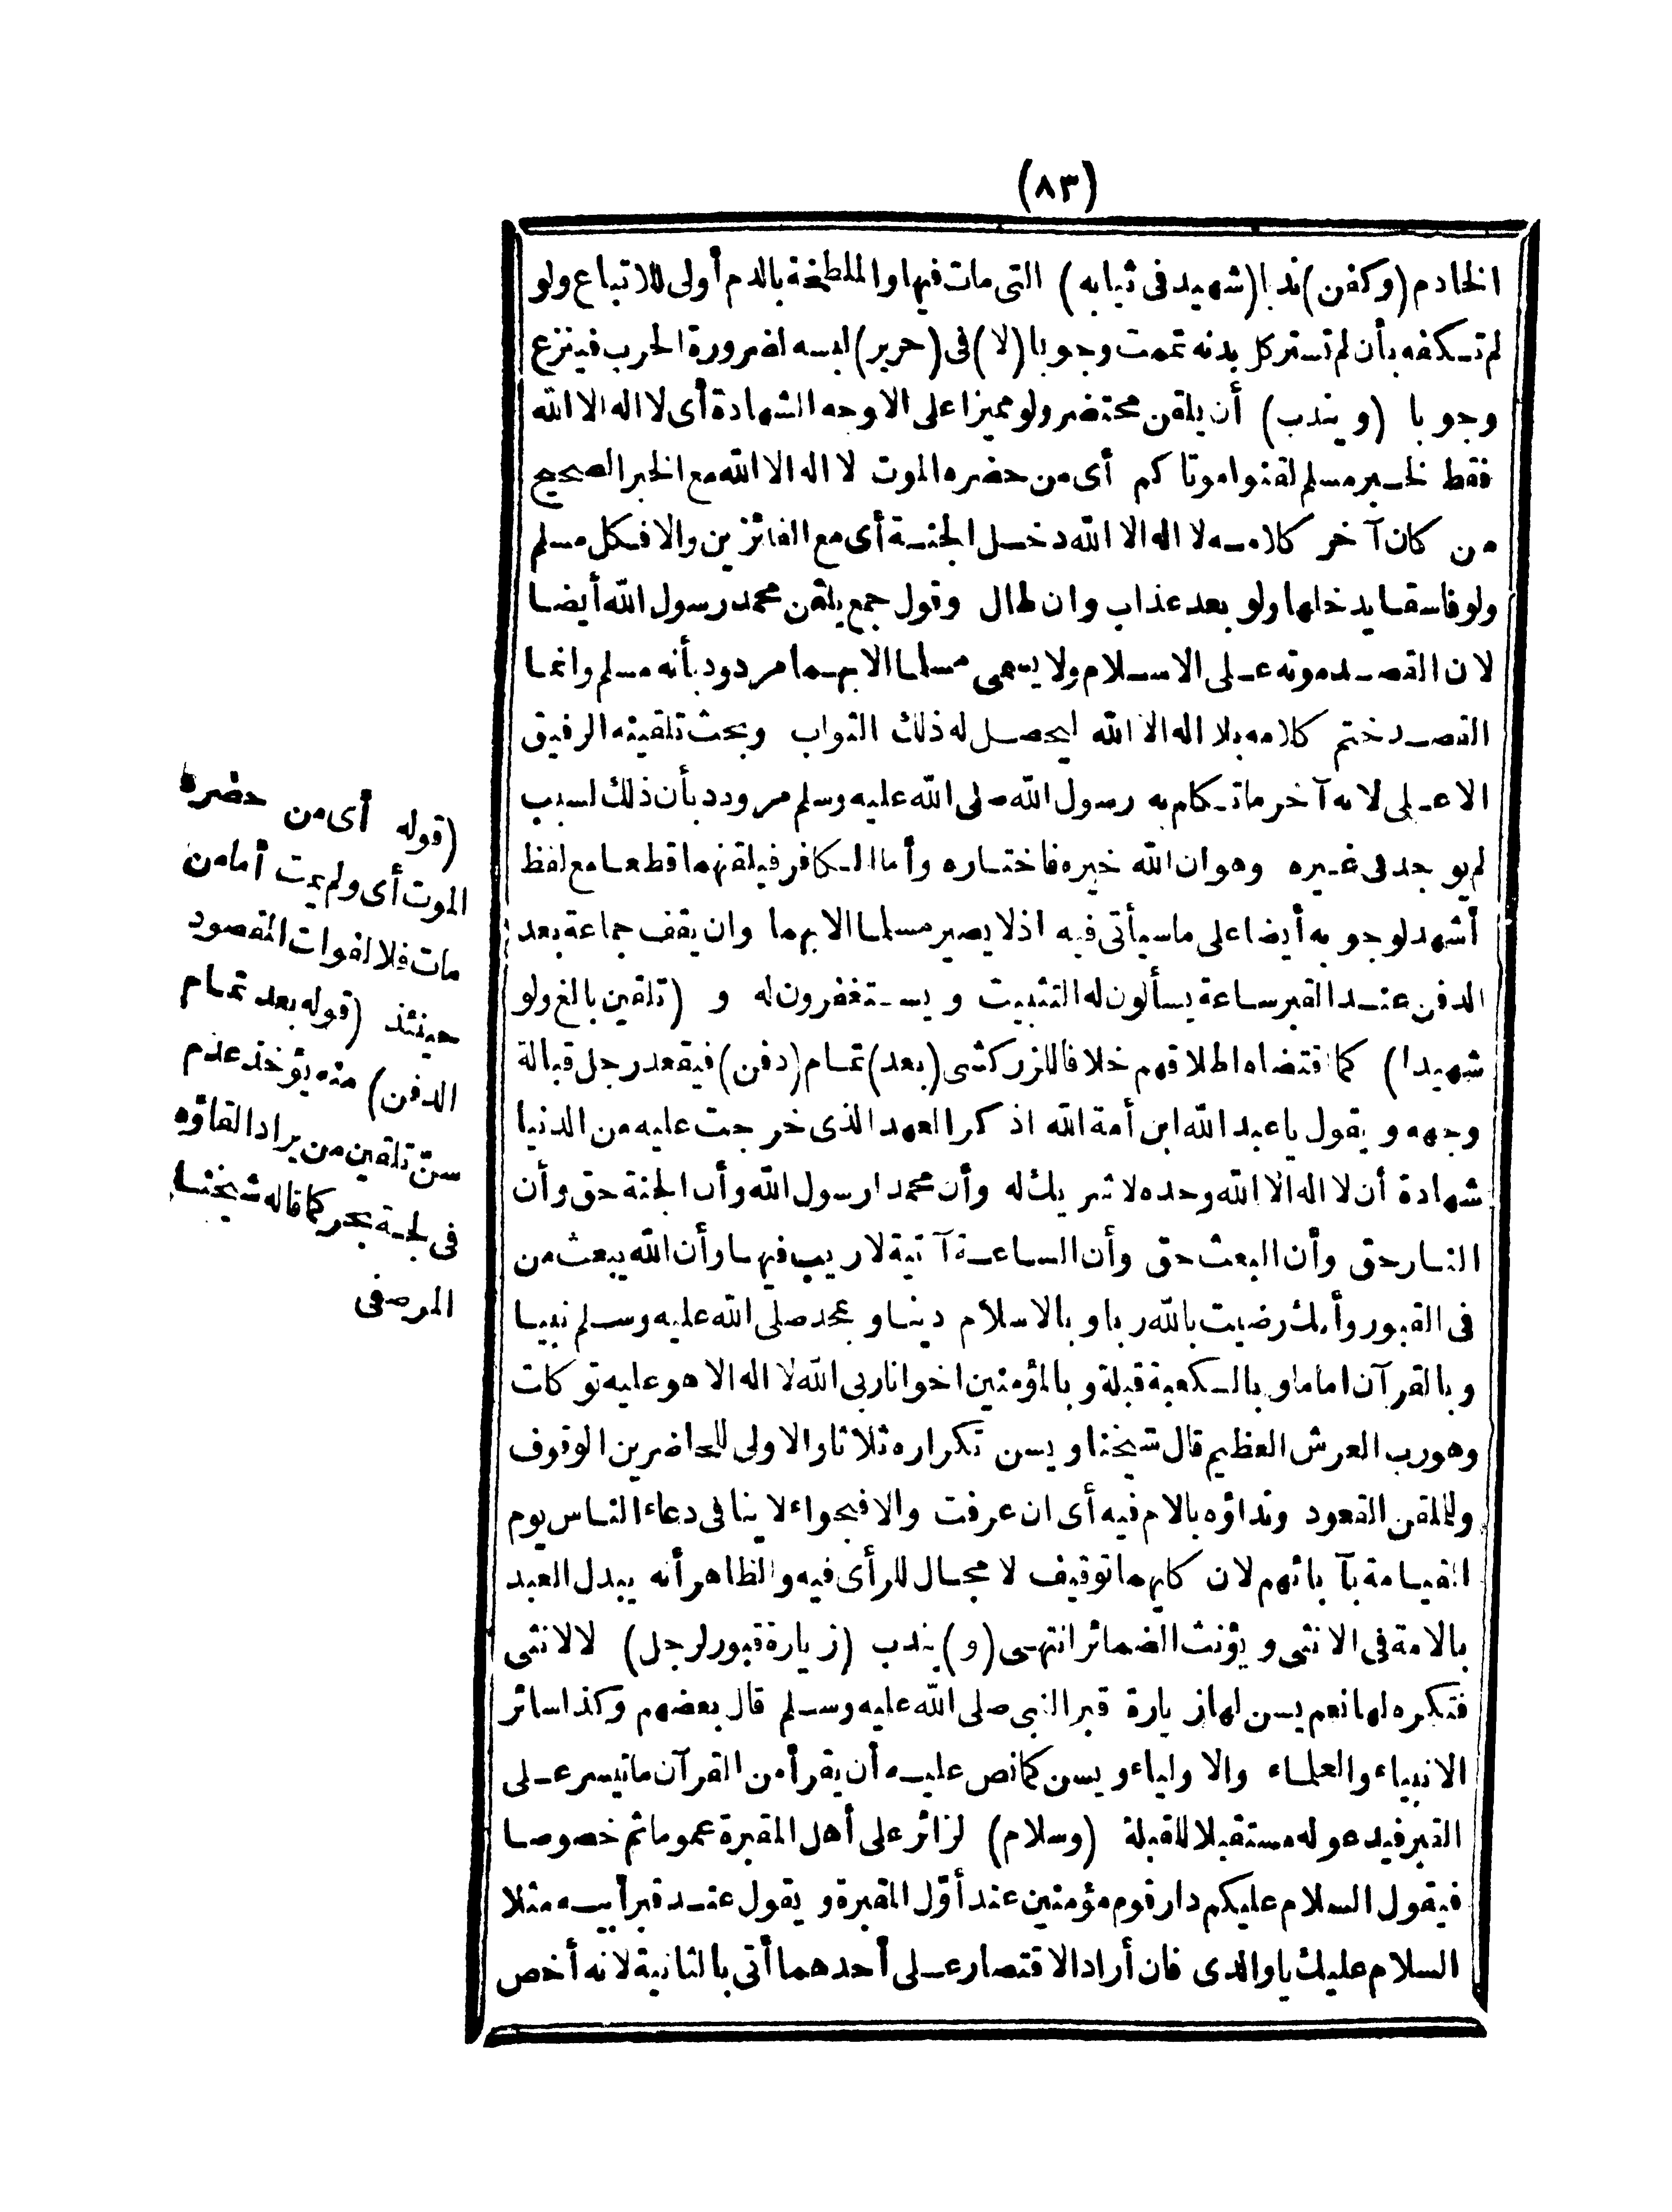 (٨٣)
الخادم (وكفن) ندبا (شهيد فى ثيابه) التى مات فيها والملطخة بالدم أولى للاتباع ولو
لم تكفه بأن لم تستر كل بدنه تممت وجوبا (لا) فى (حرير) لبسه لضرورة الحرب فينزع
وجوبا (ويندب) أن يلقن محتضر ولو مميزا على الاوجه الشهادة أى لا اله الا الله
فقط لخبر مسلم لقنوا موتاكم أى من حضره الموت لا اله الا الله مع الخبر الصحيح
من كان آخر كلامه لا اله الا الله دخل الجنة أى مع الفائزين والا فكل مسلم
ولو فاسقا يدخلها ولو بعد عذاب وان طال وقول جمع يلقن محمد رسول الله أيضا
لان القصد موته على الاسلام ولا يسمى مسلما الا بهما مردود بأنه مسلم وانما
القصد ختم كلامه بلا اله الا الله ليحصل له ذلك الثواب وبحث تلقينه الرفيق
الاعلى لانه آخر ما تكلم به رسول الله صلى الله عليه وسلم مردود بأن ذلك لسبب
لم يوجد فى غيره وهو ان الله خيره فاختاره وأما الكافر فيلقنهما قطعا مع لفظ
أشهد لوجوبه أيضا على ما سيأتى فيه اذ لا يصير مسلما الا بهما وان يقف جماعة بعد
الدفن عند القبر ساعة يسألون له التثبيت ويستغفرون له و (تلقين بالغ ولو
شهيدا) كما اقتضاه اطلاقهم خلافا للزركشى (بعد) تمام (دفن) فيقعد رجل قبالة
وجهه ويقول يا عبد الله ابن أمة الله اذكر العهد الذى خرجت عليه من الدنيا
شهادة أن لا اله الا الله وحده لا شريك له وأن محمدا رسول الله وأن الجنة حق وأن
النار حق وأن البعث حق وأن الساعة آتية لا ريب فيها وأن الله يبعث من
فى القبور وأنك رضيت بالله ربا وبالاسلام دينا وبمحمد صلى الله عليه وسلم نبيا
وبالقرآن اماما وبالكعبة قبلة وبالمؤمنين اخوانا ربى الله لا اله الا هو عليه توكلت
وهو رب العرش العظيم قال شيخنا ويسن تكراره ثلاثا والاولى للحاضرين الوقوف
وللملقن القعود ونداؤه بالام فيه أى ان عرفت والا فبحواء لا ينافى دعاء الناس يوم
القيامة بآبائهم لان كليهما توقيف لا مجال للرأى فيه والظاهر أنه يبدل العبد
بالامة فى الانثى ويؤنث الضمائر انتهى (و) يندب (زيارة قبور لرجل) لا لانثى
فتكره لها نعم يسن لها زيارة قبر النبى صلى الله عليه وسلم قال بعضهم وكذا سائر
الانبياء والعلماء والاولياء ويسن كما نص عليه أن يقرأ من القرآن ما تيسر على
القبر فيدعو له مستقبلا للقبلة (وسلام) لزائر على أهل المقبرة عموما ثم خصوصا
فيقول السلام عليكم دار قوم مؤمنين عند أول المقبرة ويقول عند قبر أبيه مثلا
السلام عليك يا والدى فان أراد الاقتصار على أحدهما أتى بالثانية لانه أخص
(قوله أى من حضره
الموت أى ولم يمت أما من
مات فلا لفوات المقصود
حينئذ (قوله بعد تمام
الدفن) منه يؤخذ عدم
سن تلقين من يراد القاؤه
فى لجة بحر كما قاله شيخنا
المرصفى